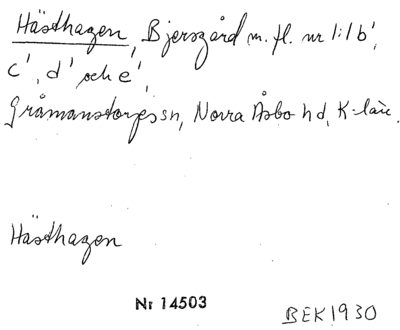 Hästhagen, Bjersgård m. fl. nr 1:1 b',
c', d' och e',
Gråmanstorps sn, Norra Åsbo hd, K-län.
Hästhagen
Nr 14503
BEK 1930